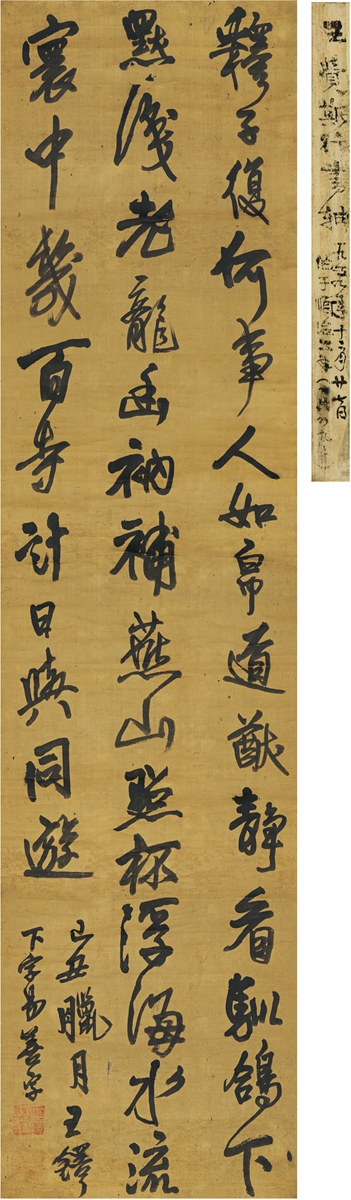 釋子復何事人如帛道猷靜看馴鴿下
默識老龍幽衲補燕山點杯浮海水流
寰中幾百寺計日與同遊
己丑臘月王鐸
下字易善字
王覺斯行書軸